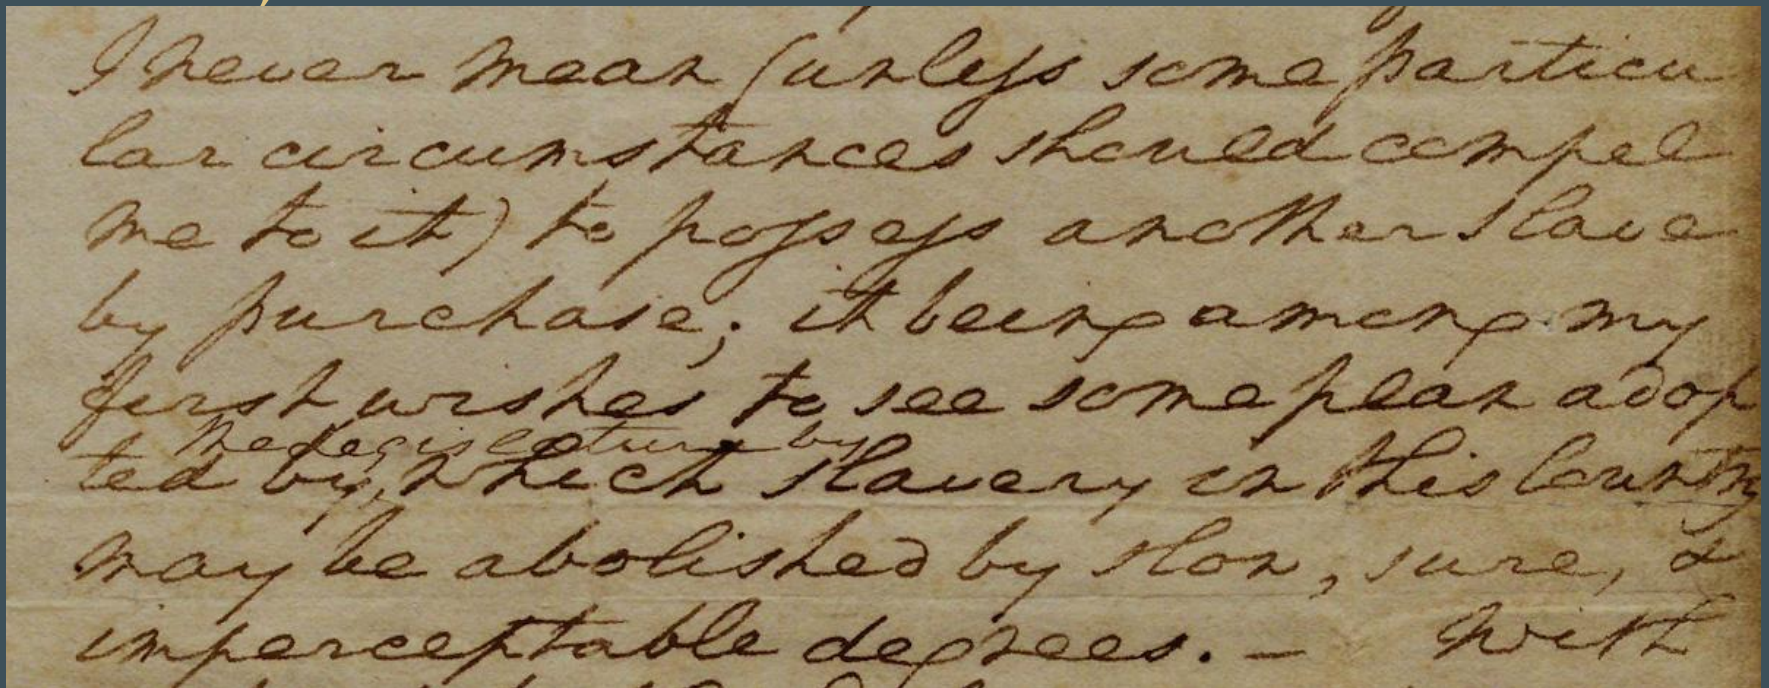 I never mean (unless some particu
lar circumstances should compel
me to it) to possess another slave
by purchase; it being among my
first wishes to see some plan adop
the Legislature by
ted by, which slavery in this Country
may be abolished by slow, sure, &
imperceptable degrees. — With